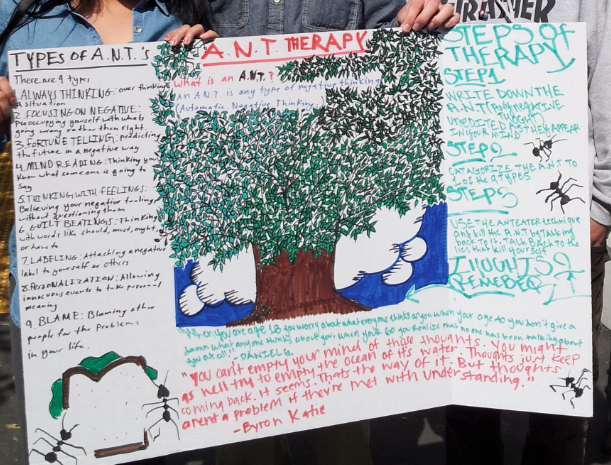 THRASHER
TYPES OF A.N.T.'s
There are 9 types
1. ALWAYS THINKING: over thinking
a situation
2. FOCUSING ON NEGATIVE:
Preoccupying yourself with whats
going wrong rather then right
3. FORTUNE TELLING, predicting
the future in a negative way
4. MIND READING: Thinking you
know what some one is going to
say
5. THINKING WITH FEELINGS:
Believing your negative feelings
without questioning them
6. GUILT BEATINGS: Thinking
with words like should, must, ought,
or have to
7. LABELING: Attaching a negative
label to yourself or others
8. PERSONALIZATION: Allowing
innocuous events to take personal
meaning
9. BLAME: Blaming other
people for the problems
in your life.
A.N.T THERAPY
What is an A.N.T.?
an ANT is any type of negative thinking
(Automatic Negative Thinking)
STEPS OF
THERAPY
STEP 1
WRITE DOWN THE
A.N.T
THOUGHT
IN YOUR MIND AS THEY APPEAR
STEP 2
CATAGORIZE THE A.N.T TO
1 OF THE 9 TYPES
STEP 3
USE THE ANTEATER technique
KILL THE A.N.T BY TALKING
BACK TO IT. TALK BACK TO THE
LIES
THOUGHTS 2
REMEBER
"When you are age 18 you worry about what everyone thinks of you when your age 40 you don't give a
damn what anyone thinks about you when your 60 you Realize that no one has been talking about
you at all" - DANIEL G.
"You can't empty your mind of those thoughts. You might
as well try to empty the ocean of it's water. Thoughts just keep
coming back. It seems. Thats the way of it. But thoughts
arent a problem if they're met with understanding."
-Byron Katie